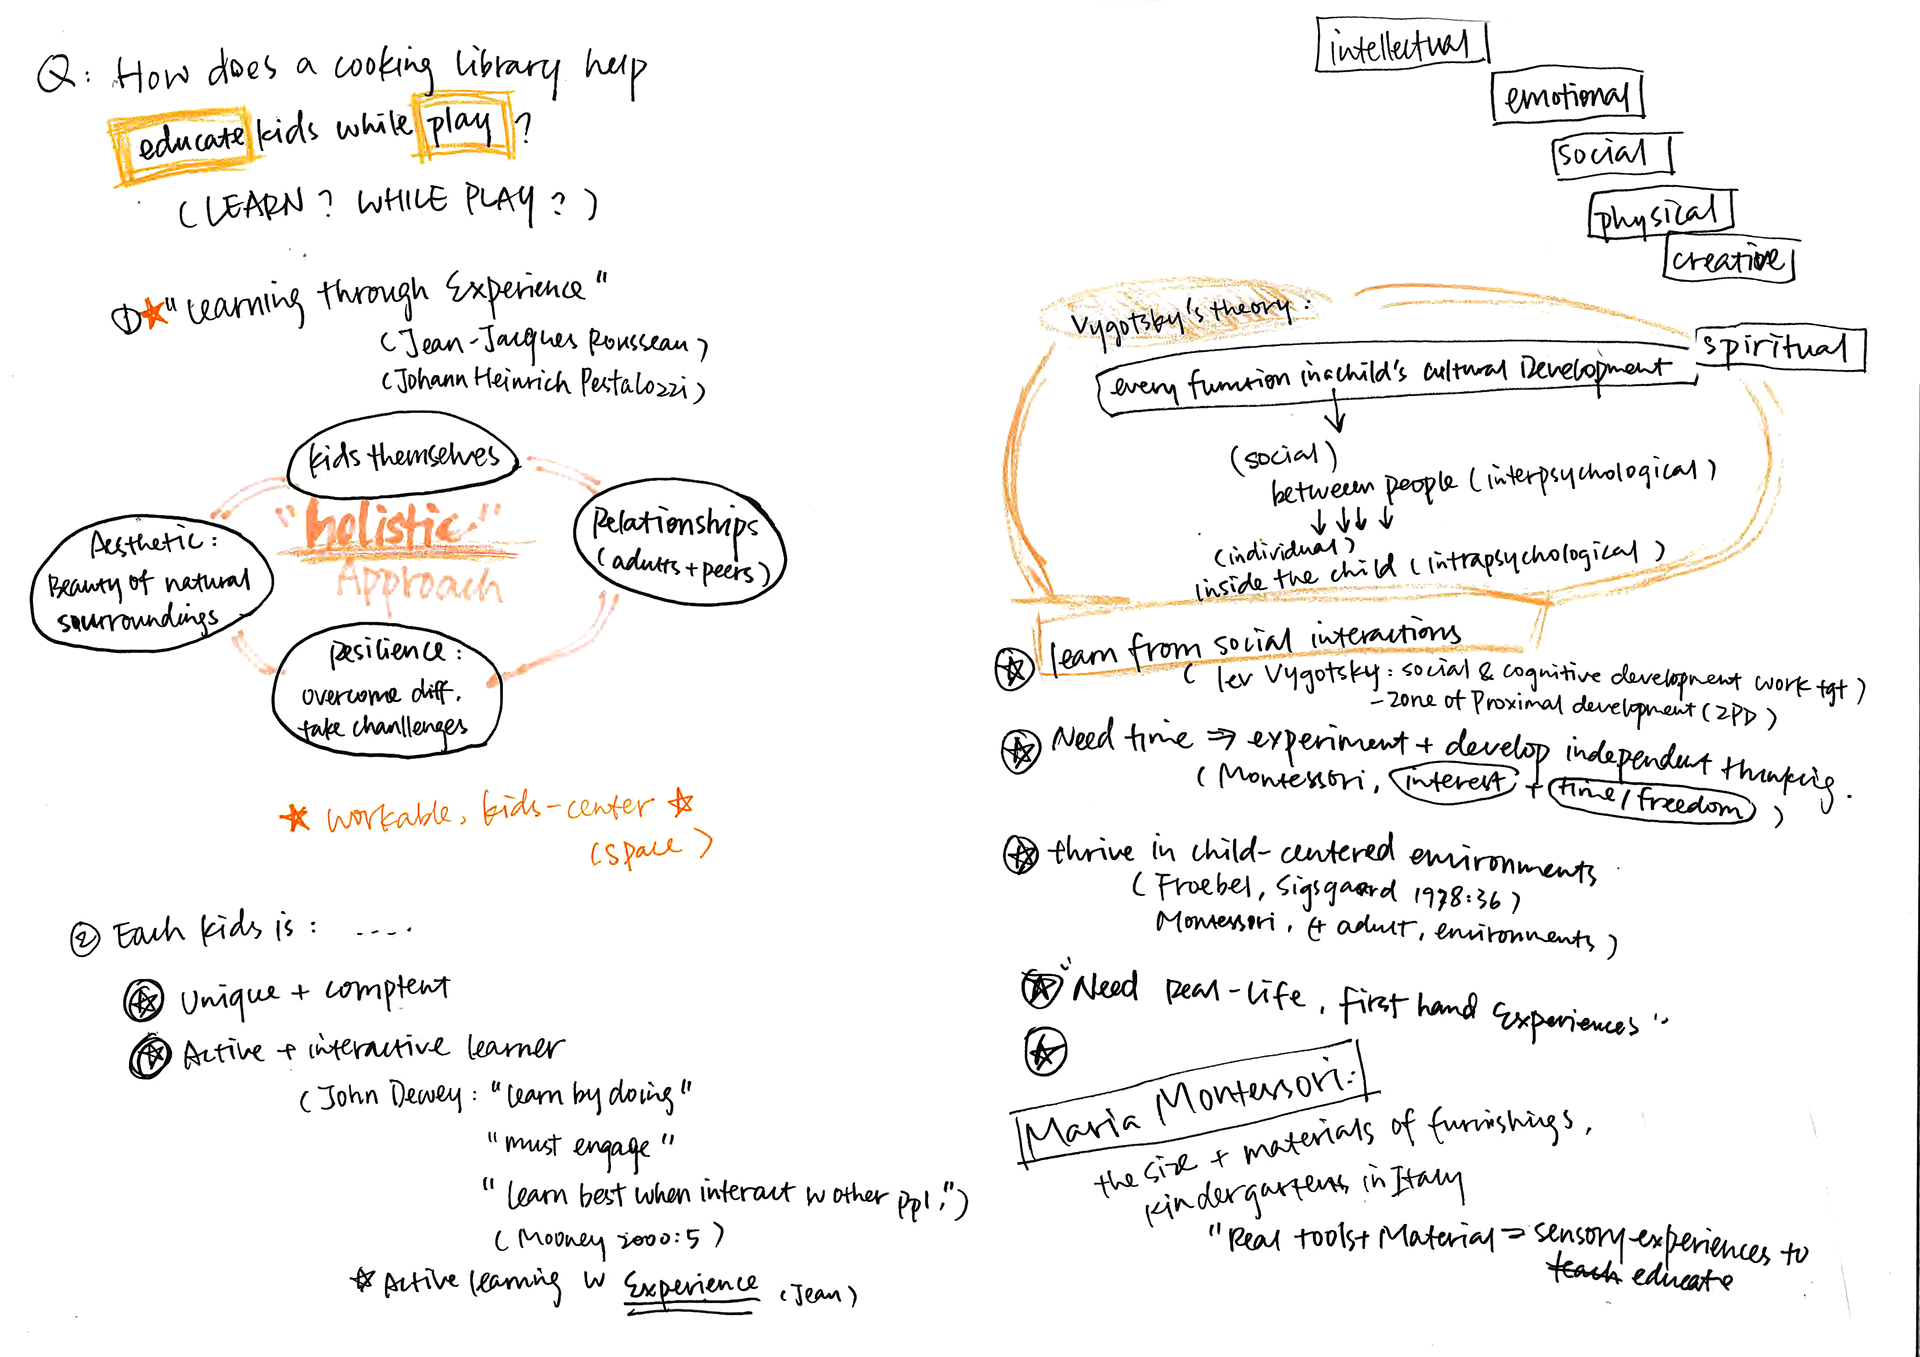 Q: How does a cooking library help
educate kids while play?
(LEARN? WHILE PLAY?)
① "Learning through Experience"
(Jean-Jacques Rousseau)
(Johann Heinrich Pestalozzi)
kids themselves
"holistic"
Approach
Relationships
(adults + peers)
Aesthetic:
Beauty of natural
sourroundings
Resilience:
overcome diff.
take chanllenges
workable, kids-center
(space)
② Each kids is: .....
Unique + comptent
Active + interactive learner
(John Dewey: "learn by doing"
"must engage"
"learn best when interact w other ppl,")
(Mooney 2000:5)
Active learning w Experience (Jean)
intellectual
emotional
social
physical
creative
spiritual
Vygotsky's theory:
every function in a child's cultural Development
(social)
betweeen people (interpsychological)
(individual)
inside the child (intrapsychological)
learn from social interactions
(lev Vygotsky: social & cognitive development work tgt)
- zone of Proximal development (ZPD)
Need time ⇒ experiment + develop independent thinking.
(Montessori, interest + time/freedom)
thrive in child-centered environments
(Froebel, Sigsgaard 1978:36)
Montessori, (+ adult, environments)
"Need Real-life, first hand Experiences"
Maria Montessori:
the size + materials of furnishings,
kindergartens in Italy
"Real tools + Material = sensory experiences to
teach educate